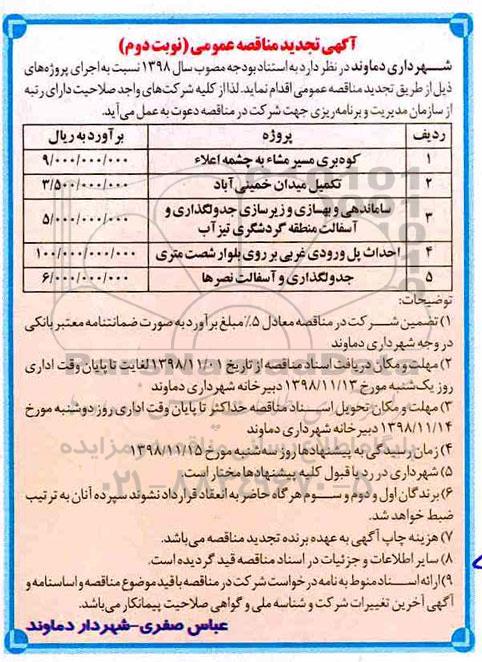 آگهی تجدید مناقصه عمومی (نوبت دوم)
شهرداری دماوند در نظر دارد به استناد بودجه مصوب سال ۱۳۹۸ نسبت به اجرای پروژه‌های
ذیل از طریق تجدید مناقصه عمومی اقدام نماید. لذا از کلیه شرکت‌های واجد صلاحیت دارای رتبه
از سازمان مدیریت و برنامه‌ریزی جهت شرکت در مناقصه دعوت به عمل می‌آید.
ردیف پروژه برآورد به ریال
۱ کوه‌بری مسیر مشاء به چشمه اعلاء ۹/۰۰۰/۰۰۰/۰۰۰
۲ تکمیل میدان خمینی آباد ۳/۵۰۰/۰۰۰/۰۰۰
۳ ساماندهی و بهسازی و زیرسازی جدولگذاری و
آسفالت منطقه گردشگری تیزآب ۵/۰۰۰/۰۰۰/۰۰۰
۴ احداث پل ورودی غربی بر روی بلوار شصت متری ۱۰۰/۰۰۰/۰۰۰/۰۰۰
۵ جدولگذاری و آسفالت نصرها ۶/۰۰۰/۰۰۰/۰۰۰
توضیحات:
۱) تضمین شرکت در مناقصه معادل ۵٪ مبلغ برآورد به صورت ضمانتنامه معتبر بانکی
در وجه شهرداری دماوند
۲) مهلت و مکان دریافت اسناد مناقصه از تاریخ ۱۳۹۸/۱۱/۰۱ لغایت تا پایان وقت اداری
روز یک‌شنبه مورخ ۱۳۹۸/۱۱/۱۳ دبیرخانه شهرداری دماوند
۳) مهلت و مکان تحویل اسناد مناقصه حداکثر تا پایان وقت اداری روز دوشنبه مورخ
۱۳۹۸/۱۱/۱۴ دبیرخانه شهرداری دماوند
۴) زمان رسیدگی به پیشنهادها روز سه‌شنبه مورخ ۱۳۹۸/۱۱/۱۵
۵) شهرداری در رد یا قبول کلیه پیشنهادها مختار است.
۶) برندگان اول و دوم و سوم هرگاه حاضر به انعقاد قرارداد نشوند سپرده آنان به ترتیب
ضبط خواهد شد.
۷) هزینه چاپ آگهی به عهده برنده تجدید مناقصه می‌باشد.
۸) سایر اطلاعات و جزئیات در اسناد مناقصه قید گردیده است.
۹) ارائه اسناد منوط به نامه درخواست شرکت در مناقصه با قید موضوع مناقصه و اساسنامه و
آگهی آخرین تغییرات شرکت و شناسه ملی و گواهی صلاحیت پیمانکار می‌باشد.
عباس صفری-شهردار دماوند
ParsNamadData
پایگاه اطلاع رسانی مناقصه و مزایده
۰۲۱-۸۸۳۴۹۶۷۰-۵